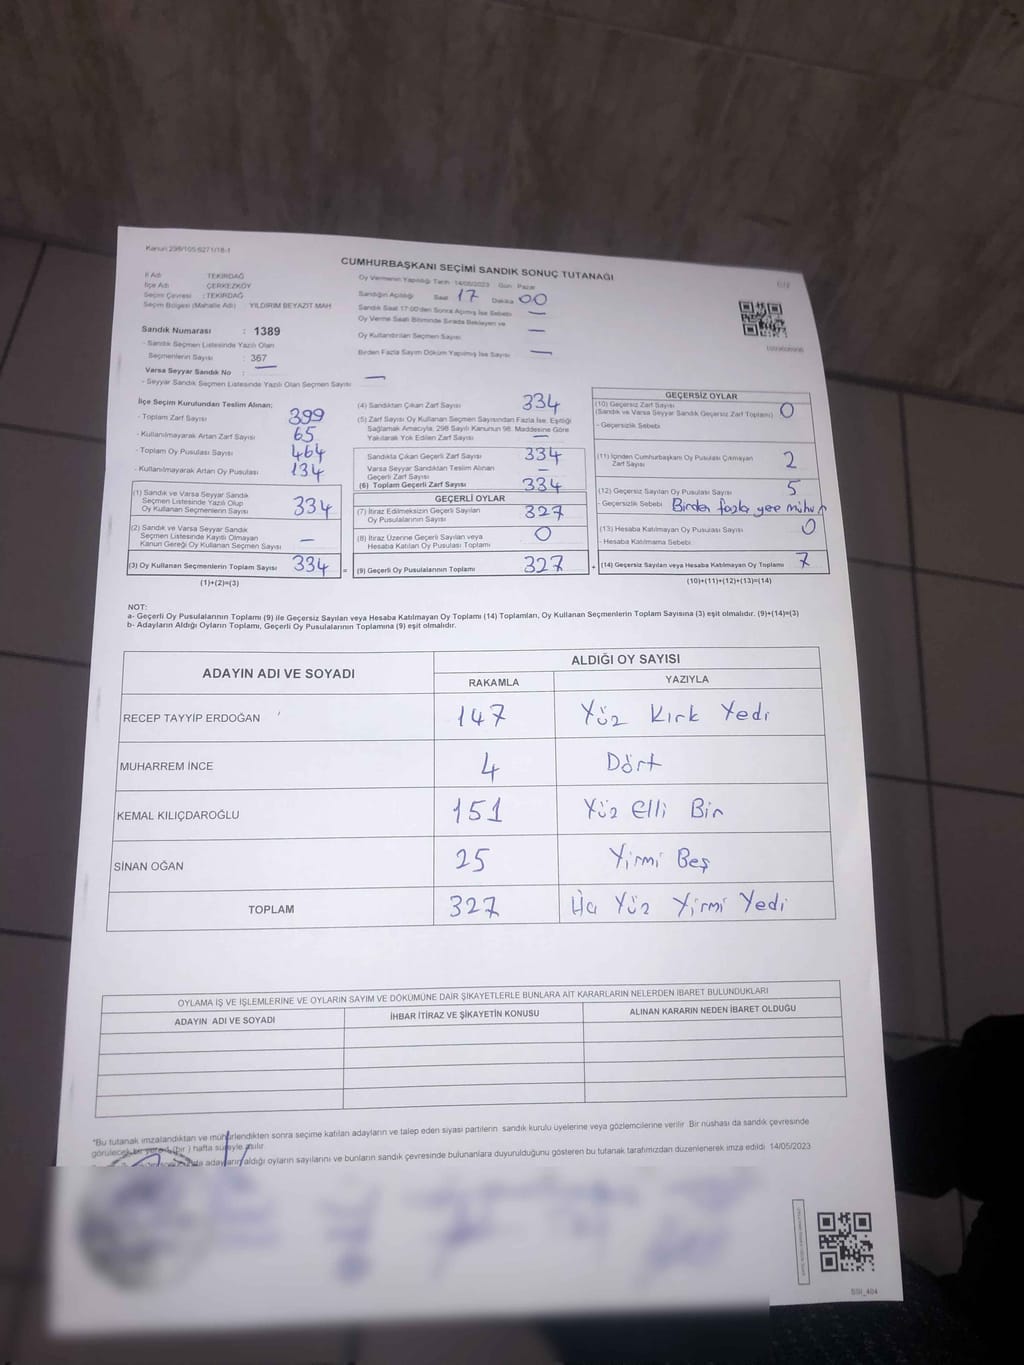 Kanun 298/105 6271/18-1
CUMHURBAŞKANI SEÇİMİ SANDIK SONUÇ TUTANAĞI
İl Adı TEKİRDAĞ
İlçe Adı ÇERKEZKÖY
Seçim Çevresi : TEKİRDAĞ
Seçim Bölgesi (Mahalle Adı) : YILDIRIM BEYAZIT MAH
Sandık Numarası : 1389
- Sandık Seçmen Listesinde Yazılı Olan
Seçmenlerin Sayısı : 367
Varsa Seyyar Sandık No : —
- Seyyar Sandık Seçmen Listesinde Yazılı Olan Seçmen Sayısı —
Oy Vermenin Yapıldığı Tarih : 14/05/2023 Gün : Pazar
Sandığın Açıldığı Saat 17 Dakika 00
Sandık Saat 17:00'den Sonra Açılmış İse Sebebi —
Oy Verme Saati Bitiminde Sırada Bekleyen ve
Oy Kullandırılan Seçmen Sayısı —
Birden Fazla Sayım Döküm Yapılmış İse Sayısı —
İlçe Seçim Kurulundan Teslim Alınan;
- Toplam Zarf Sayısı 399
- Kullanılmayarak Artan Zarf Sayısı 65
- Toplam Oy Pusulası Sayısı 464
- Kullanılmayarak Artan Oy Pusulası 134
(1) Sandık ve Varsa Seyyar Sandık
Seçmen Listesinde Yazılı Olup
Oy Kullanan Seçmenlerin Sayısı 334
(2) Sandık ve Varsa Seyyar Sandık
Seçmen Listesinde Kayıtlı Olmayan
Kanun Gereği Oy Kullanan Seçmen Sayısı —
(3) Oy Kullanan Seçmenlerin Toplam Sayısı 334 =
(1)+(2)=(3)
(4) Sandıktan Çıkan Zarf Sayısı 334
(5) Zarf Sayısı Oy Kullanan Seçmen Sayısından Fazla İse, Eşitliği
Sağlamak Amacıyla; 298 Sayılı Kanunun 98. Maddesine Göre
Yakılarak Yok Edilen Zarf Sayısı —
Sandıkta Çıkan Geçerli Zarf Sayısı 334
Varsa Seyyar Sandıktan Teslim Alınan
Geçerli Zarf Sayısı —
(6) Toplam Geçerli Zarf Sayısı 334
GEÇERLİ OYLAR
(7) İtiraz Edilmeksizin Geçerli Sayılan
Oy Pusulalarının Sayısı 327
(8) İtiraz Üzerine Geçerli Sayılan veya
Hesaba Katılan Oy Pusulası Toplamı 0
(9) Geçerli Oy Pusulalarının Toplamı 327 +
GEÇERSİZ OYLAR
(10) Geçersiz Zarf Sayısı
(Sandık ve Varsa Seyyar Sandık Geçersiz Zarf Toplamı) 0
- Geçersizlik Sebebi
(11) İçinden Cumhurbaşkanı Oy Pusulası Çıkmayan
Zarf Sayısı 2
(12) Geçersiz Sayılan Oy Pusulası Sayısı 5
- Geçersizlik Sebebi Birden fazla yere mühür
(13) Hesaba Katılmayan Oy Pusulası Sayısı 0
- Hesaba Katılmama Sebebi
(14) Geçersiz Sayılan veya Hesaba Katılmayan Oy Toplamı 7
(10)+(11)+(12)+(13)=(14)
NOT:
a- Geçerli Oy Pusulalarının Toplamı (9) ile Geçersiz Sayılan veya Hesaba Katılmayan Oy Toplamı (14) Toplamları, Oy Kullanan Seçmenlerin Toplam Sayısına (3) eşit olmalıdır. (9)+(14)=(3)
b- Adayların Aldığı Oyların Toplamı, Geçerli Oy Pusulalarının Toplamına (9) eşit olmalıdır.
ADAYIN ADI VE SOYADI ALDIĞI OY SAYISI
RAKAMLA YAZIYLA
RECEP TAYYİP ERDOĞAN 147 Yüz Kırk Yedi
MUHARREM İNCE 4 Dört
KEMAL KILIÇDAROĞLU 151 Yüz Elli Bir
SİNAN OĞAN 25 Yirmi Beş
TOPLAM 327 Üç Yüz Yirmi Yedi
OYLAMA İŞ VE İŞLEMLERİNE VE OYLARIN SAYIM VE DÖKÜMÜNE DAİR ŞİKAYETLERLE BUNLARA AİT KARARLARIN NELERDEN İBARET BULUNDUKLARI
ADAYIN ADI VE SOYADI İHBAR İTİRAZ VE ŞİKAYETİN KONUSU ALINAN KARARIN NEDEN İBARET OLDUĞU
*Bu tutanak imzalandıktan ve mühürlendikten sonra seçime katılan adayların ve talep eden siyasi partilerin sandık kurulu üyelerine veya gözlemcilerine verilir. Bir nüshası da sandık çevresinde
görülecek bir yere 1 (bir) hafta süreyle asılır.
adayların aldığı oyların sayılarını ve bunların sandık çevresinde bulunanlara duyurulduğunu gösteren bu tutanak tarafımızdan düzenlenerek imza edildi. 14/05/2023
SSI_404